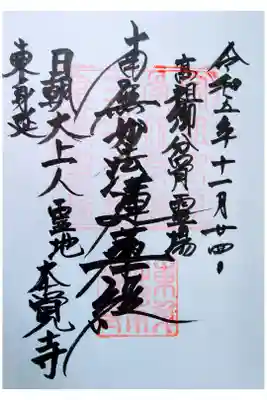 令和五年十一月廿四日
高祖御分骨霊場
南無妙法蓮華経
日朝大上人霊地 本覚寺
東身延